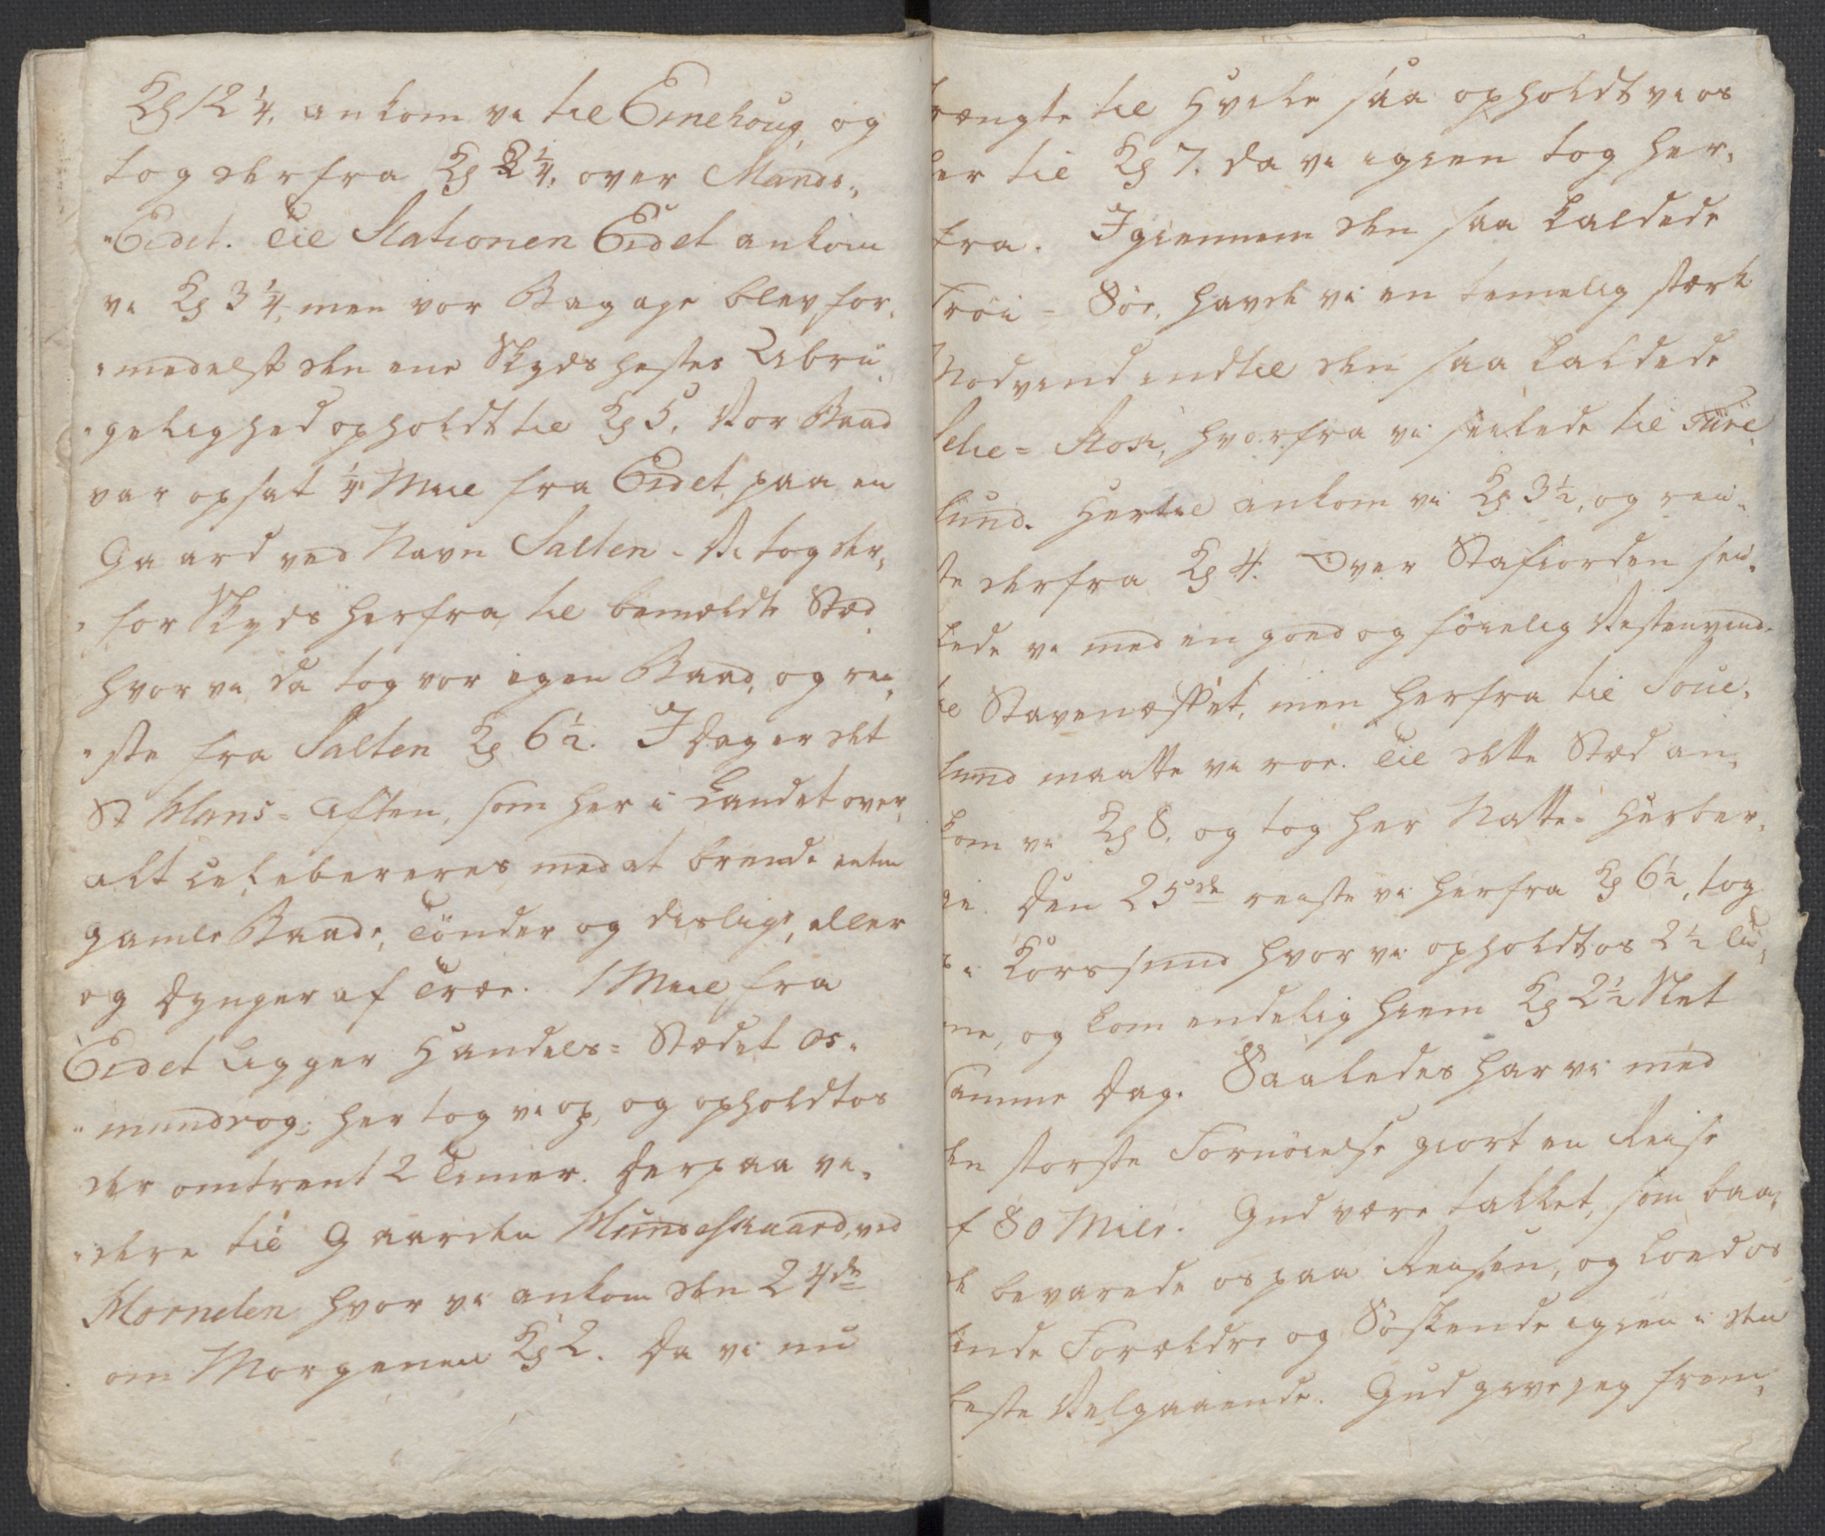 Kl 12 1/4, ankom vi til Einehoug, og
tog derfra Kl 2 1/4, over Mands-
-Eidet. Til Stationen Eidet ankom
vi Kl 3 1/4, men vor Bagage blev for-
-medelst den ene Skydshestes Ubru-
-gelighed opholdt til Kl 5. Vor Baad
var opsat 1/4 Miil fra Eidet, paa en
Gaard ved Navn Salten - Vi tog der-
-for Skyds herfra til bemældte Stæd
hvor vi da tog vor egen Baad, og rei-
-ste fra Salten Kl 6 1/2. I Dag er det
St Hans-Aften, som her i Landet over-
alt celebereres med at brende enten
gamle Baade, Tönder og deslige, eller
og Dynger af Træe. 1 Miil fra
Eidet ligger Handels-Stædet Os-
-mundvog; her tog vi op, og opholdt os
der omtrent 2 Timer. Derpaa vi-
-dere til Gaarden Hundeskaard, ved
Hornelen hvor vi ankom den 24de
om Morgenen Kl 2. Da vi nu
trængte til Hvile saa opholdt vi os
her til Kl 7. da vi igien tog her-
fra. Igiennem den saa kaldede
Fröi-Söe, havde vi en temelig stærk
Modvind indtil den saa kaldede
hvorfra vi seilede til
sund. Hertil ankom vi Kl 3 1/2, og rei-
ste derfra Kl 4. Over Stafiorden sei-
lede vi med en goed og föielig Vestenvind
til Stavenæsset, men herfra til Soue-
sund maatte vi roe. Til dette Stæd an-
kom vi Kl 8, og tog her Natte-Herber-
ge. Den 25de reiste vi herfra Kl 6 1/2, tog
Korssund hvor vi opholdt os 2 1/2 Ti-
me, og kom endelig hiem Kl 2 1/2 Slet
samme Dag. Saaledes har vi med
den störste Fornöielse giort en Reise
af 80 Mile. Gud være takket, som baa-
de bevarede os paa Reisen, og loed os
finde Forældre og Söskende igien i den
beste Velgaaende. Gud give jeg frem-